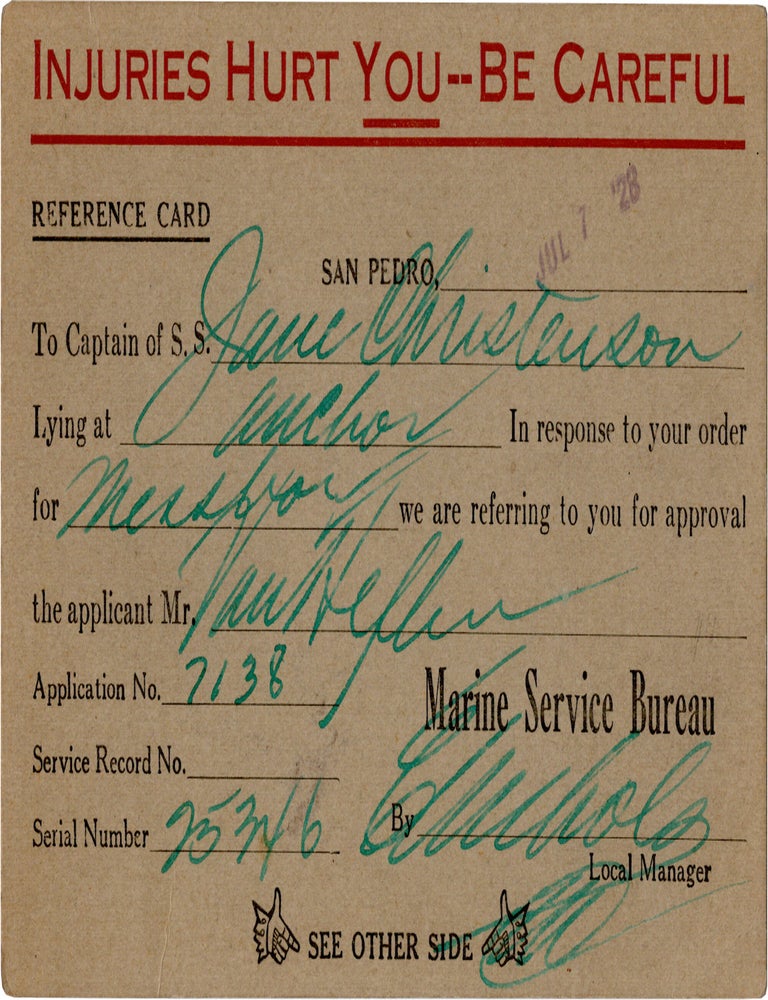 INJURIES HURT YOU--BE CAREFUL
REFERENCE CARD
JUL 7 '28
SAN PEDRO,
To Captain of S. S. Jane Christenson
Lying at anchor In response to your order
for Messboy we are referring to you for approval
the applicant Mr. Van Heflin
Application No. 7138
Marine Service Bureau
Service Record No.
Serial Number
By Nichols
Local Manager
SEE OTHER SIDE